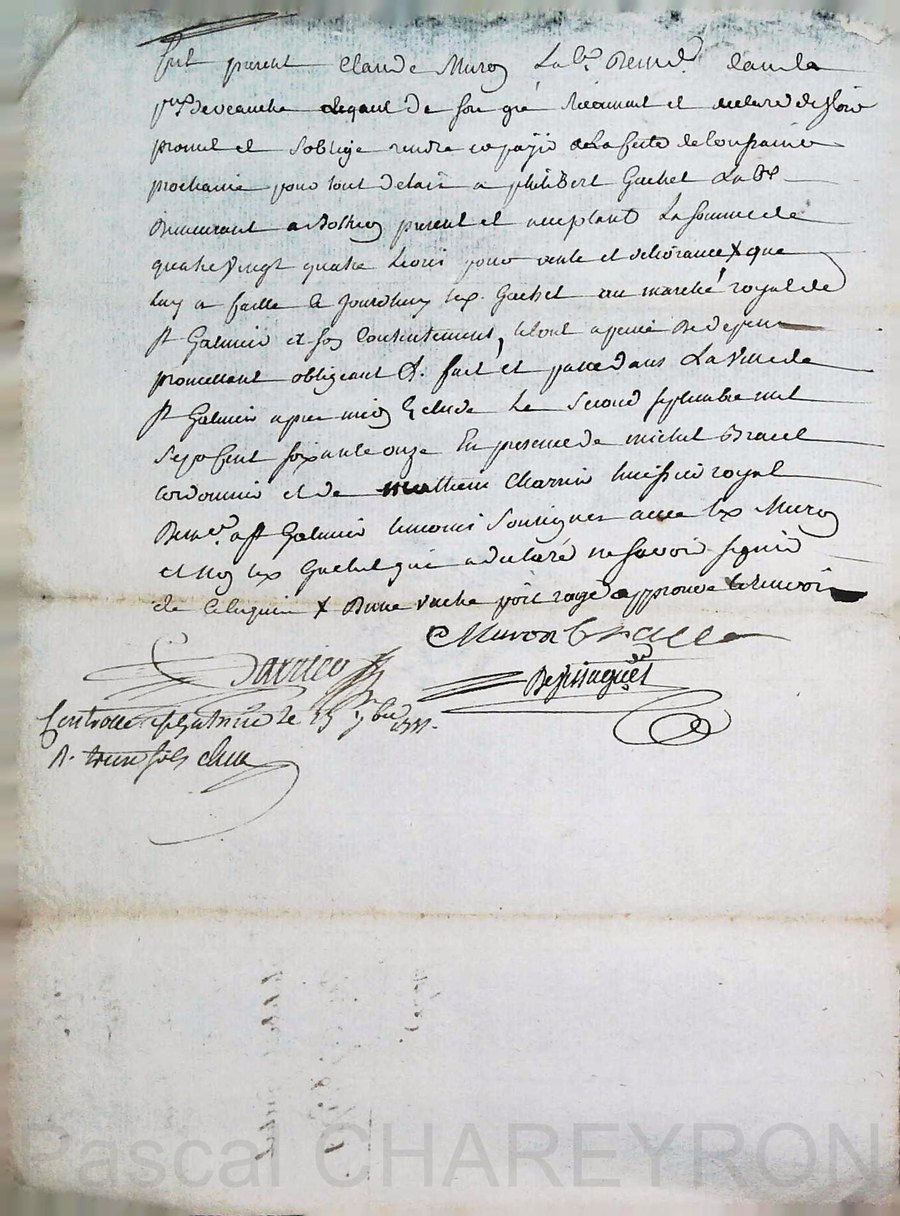 fut present Claude Muron lab.r Demt. dans la
p.sse de veauche lequel de son gré
promet et s'oblige rendre et payer a la feste de toussaint
prochaine pour tout delais a philibert Guchet Lab.r
Demeurant a Bothéon present et acceptant La somme de
quatre vingt quatre livres pour vente et delivrance X que
luy a faitte ce jourdhuy led. Guchet au marché royal de
st Galmier a son Contentement, le tout a peine de depens
promettant obligeant &. fait et passé dans La Ville de
st Galmier apres midy Le second septembre mil
sept cent soixante onze En presence de michel
cordonnier et de mathieu Charrin huissier royal
Dem.t a st Galmier temoins soussignes avec led Muron
et non led Guchet qui a declaré ne savoir signer
de ce enquis X Dune vache poil rouge approuvé le renvoi
Muron
Controllé a st Galmier le 15 7bre 1771.
R. treize sols
Pascal CHAREYRON